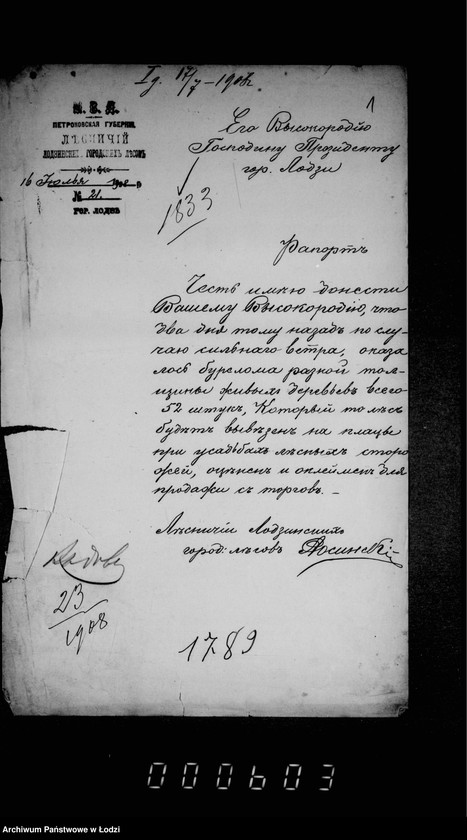 Ig. 17/7-1908.
1
М. В. Д.
ПЕТРОКОВСКАЯ ГУБЕРНІЯ
ЛѢСНИЧІЙ
ЛОДЗИНСКИХЪ ГОРОДСКИХЪ ЛѢСОВЪ
16 Іюлья 1908 г.
№ 21.
ГОР. ЛОДЗЬ
Его Высокородію
Господину Президенту
гор. Лодзи
1833
Рапортъ
Честь имѣю донести
Вашему Высокородію, что
два дня тому назадъ по слу-
чаю сильнаго вѣтра, оказа
лось бурелома разной тол-
щины живыхъ деревьевъ всего
52 штукъ, Который то лѣсъ
будетъ вывезенъ на плацы
при усадьбахъ лѣсныхъ сторо
жей, оцѣненъ и оклейменъ для
продажи съ торговъ. –
Лѣсничій Лодзинскихъ
город. лѣсовъ
23/1908
1789
000603
Archiwum Państwowe w Łodzi